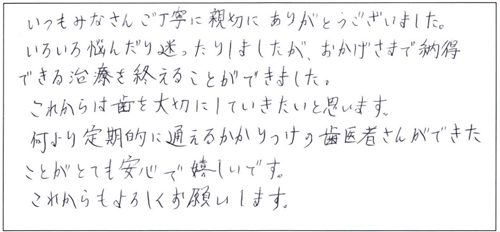 いつもみなさんご丁寧に親切にありがとうございました。
いろいろ悩んだり迷ったりしましたが、おかげさまで納得
できる治療を終えることができました。
これからは歯を大切にしていきたいと思います。
何より定期的に通えるかかりつけの歯医者さんができた
ことがとても安心で嬉しいです。
これからもよろしくお願いします。